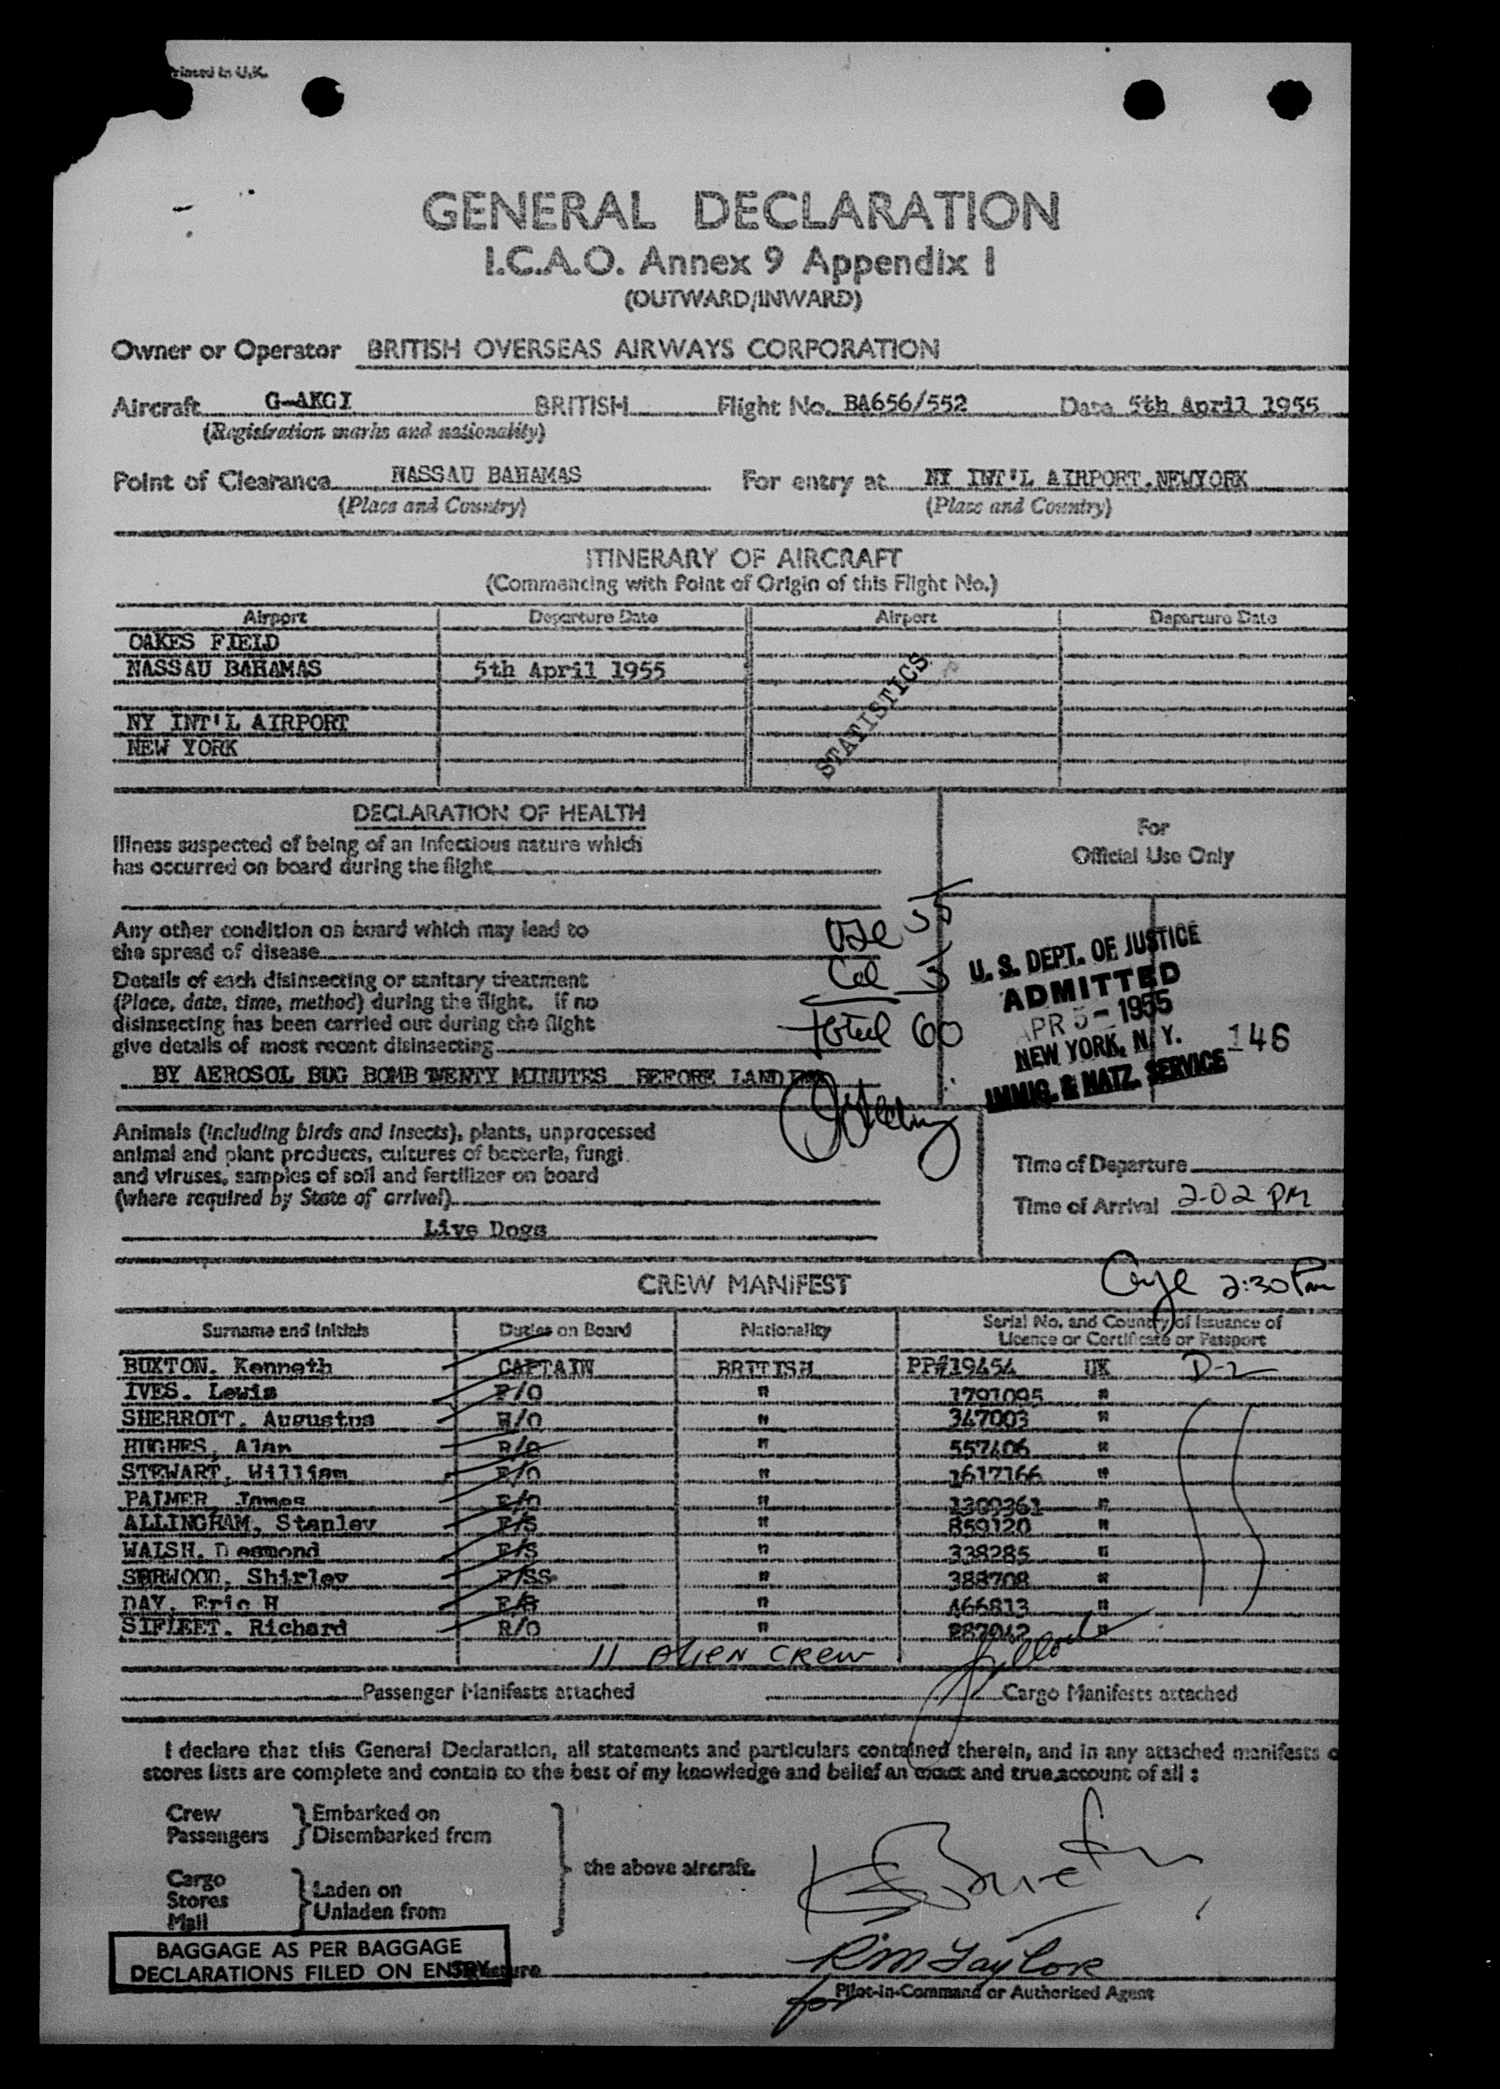 Printed in U.K.
GENERAL DECLARATION
I.C.A.O. Annex 9 Appendix I
(OUTWARD/INWARD)
Owner or Operator BRITISH OVERSEAS AIRWAYS CORPORATION
Aircraft G-AKGI BRITISH Flight No. BA656/552 Date 5th April 1955
(Registration marks and nationality)
Point of Clearance NASSAU BAHAMAS For entry at NY INT'L AIRPORT.NEWYORK
(Place and Country) (Place and Country)
ITINERARY OF AIRCRAFT
(Commencing with Point of Origin of this Flight No.)
Airport Departure Date Airport Departure Date
OAKES FIELD
NASSAU BAHAMAS 5th April 1955
STATISTICS
NY INT'L AIRPORT
NEW YORK
DECLARATION OF HEALTH
For
Official Use Only
Illness suspected of being of an infectious nature which
has occurred on board during the flight
Any other condition on board which may lead to
the spread of disease
Details of each disinsecting or sanitary treatment
(Place, date, time, method) during the flight. If no
disinsecting has been carried out during the flight
give details of most recent disinsecting
BY AEROSOL BUG BOMB TWENTY MINUTES BEFORE LANDING
55
5
total 60
U. S. DEPT. OF JUSTICE
ADMITTED
APR 5 - 1955
NEW YORK, N. Y.
IMMIG. & NATZ. SERVICE
146
Animals (including birds and insects), plants, unprocessed
animal and plant products, cultures of bacteria, fungi
and viruses, samples of soil and fertilizer on board
(where required by State of arrival)
Live Dogs
Time of Departure
Time of Arrival 2-02 PM
2:30 Pm
CREW MANIFEST
Surname and Initials Duties on Board Nationality Serial No. and Country of Issuance of
Licence or Certificate or Passport
BUXTON. Kenneth CAPTAIN BRITISH PP#19454 UK D-2
IVES. Lewis F/O " 1791095 "
SHERROTT. Augustus N/O " 347003 "
HUGHES, Alan R/O " 557406 "
STEWART, William E/O " 1617166 "
PALMER, James E/O " 1309361 "
ALLINGHAM, Stanley F/S " 859120 "
WALSH. Desmond F/S " 338285 "
SERWOOD, Shirley F/SS " 388708 "
DAY. Eric H F/S " 466813 "
SIFLEET. Richard R/O " 887042 "
11 ALIEN CREW
Passenger Manifests attached Cargo Manifests attached
I declare that this General Declaration, all statements and particulars contained therein, and in any attached manifests o
stores lists are complete and contain to the best of my knowledge and belief an exact and true account of all :
Crew Embarked on
Passengers Disembarked from
the above aircraft.
Cargo Laden on
Stores Unladen from
Mail
BAGGAGE AS PER BAGGAGE
DECLARATIONS FILED ON ENTRY
Signature
R M Taylor
for Pilot-in-Command or Authorised Agent